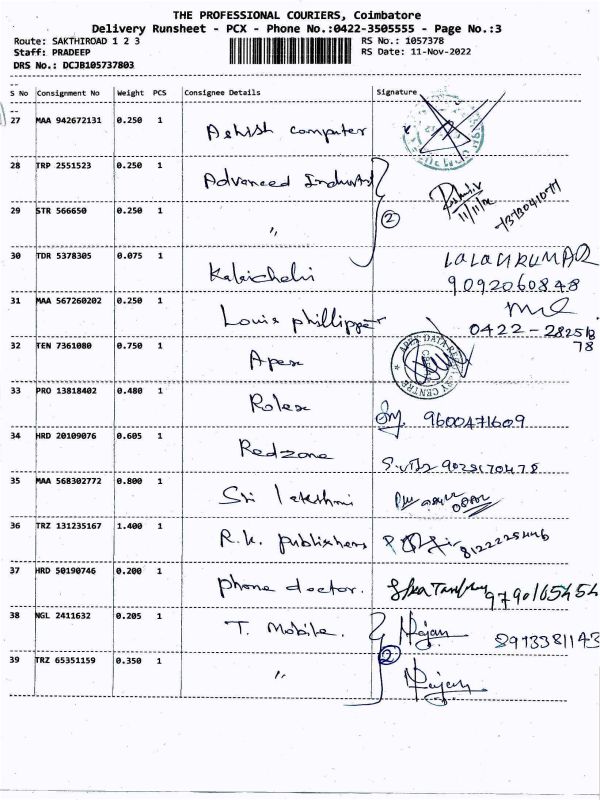 THE PROFESSIONAL COURIERS, Coimbatore
Delivery Runsheet - PCX - Phone No.:0422-3505555 - Page No.:3
Route: SAKTHIROAD 1 2 3 RS No.: 1057378
Staff: PRADEEP RS Date: 11-Nov-2022
DRS No.: DCJB105737803
S No Consignment No Weight PCS Consignee Details Signature
27 MAA 942672131 0.250 1 Ashish computer
28 TRP 2551523 0.250 1 Advanced Industri
29 STR 566650 0.250 1 〃 2 11/11/22
30 TDR 5378305 0.075 1 LALAJIKUMAR
9092060848
31 MAA 567260202 0.250 1 Louis phillippe
0422-28251
78
32 TEN 7361080 0.750 1 Apex
33 PRO 13818402 0.480 1 Rolex 9600471609
34 HRD 20109076 0.605 1 Redzone 9028170478
35 MAA 568302772 0.800 1 Sri lakshmi
36 TRZ 131235167 1.400 1 R.k. publishers 8122225446
37 HRD 50190746 0.200 1 phone doctor. 9790165454
38 NGL 2411632 0.205 1 T. Mobile. Rajan 8973381143
39 TRZ 65351159 0.350 1 〃 2 Rajan